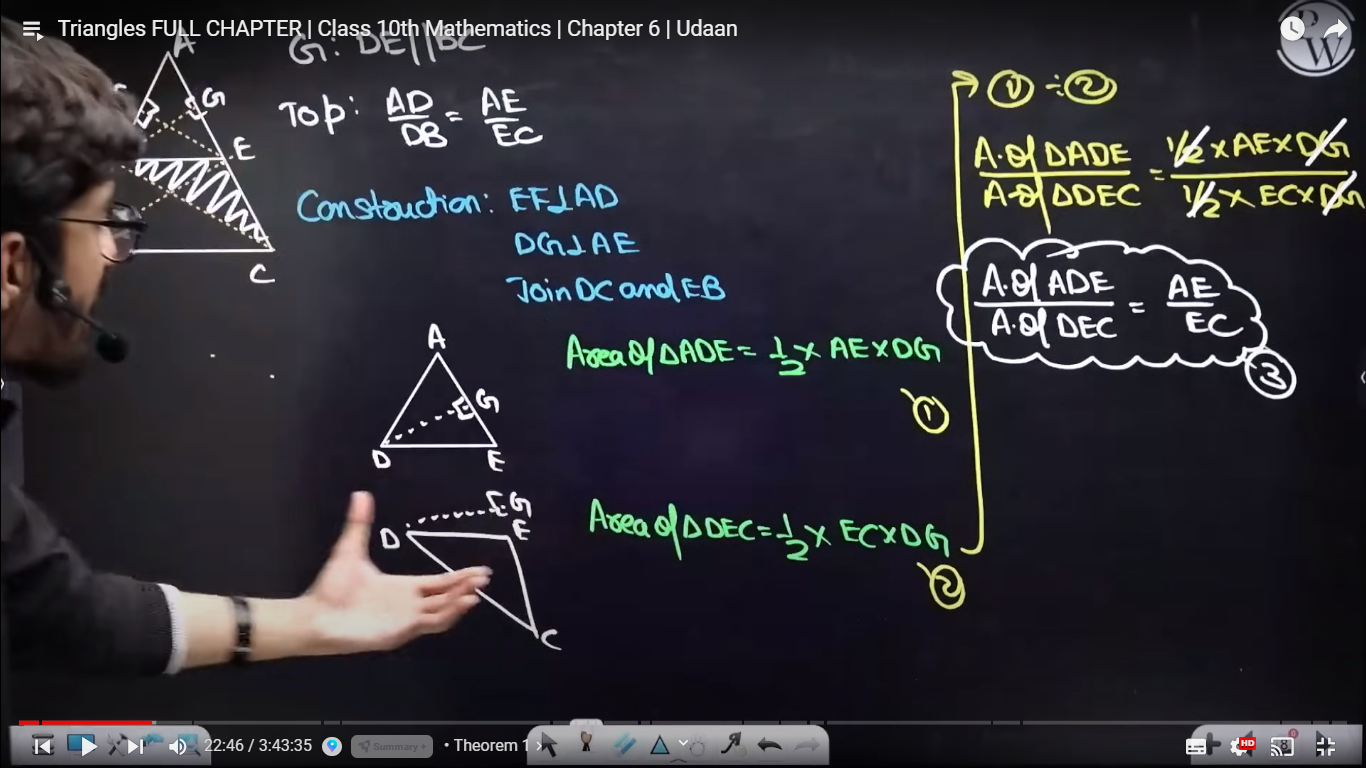 Triangles FULL CHAPTER | Class 10th Mathematics | Chapter 6 | Udaan
PW
G: DE||BC
A
G
E
C
To p: AD/DB = AE/EC
Construction: EF⊥AD
DG⊥AE
Join DC and EB
A
G
D E
Area of ΔADE = 1/2 × AE × DG
1
G
D E
C
Area of ΔDEC = 1/2 × EC × DG
2
1 ÷ 2
A. of ΔADE / A. of ΔDEC = 1/2 × AE × DG / 1/2 × EC × DG
A. of ADE / A. of DEC = AE / EC
3
22:46 / 3:43:35 Summary + • Theorem 1 HD